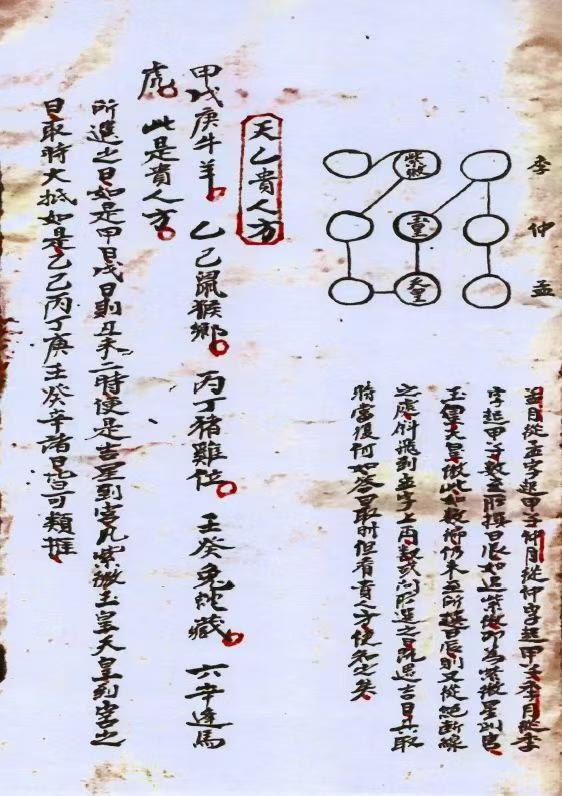 季
仲
孟
紫微
玉皇
天皇
孟月從孟字起甲子仲月從仲字起甲子季月從季
字起甲子數至所擇日辰如遇紫微即為紫微星到宮
玉皇天皇倣此如數將仍未至所擇日辰則又從絕斷線
之處斜飛到孟字上再數或問所選之日既遇吉日其取
時當復何如答曰取时但看貴人方便知之矣
天乙貴人方
甲戊庚牛羊 乙己鼠猴鄉 丙丁猪雞位 壬癸兔蛇藏 六辛逢馬
虎 此是貴人方
所選之日如是甲日戊日則丑未二時便是吉星到宮凡紫微玉皇天皇到宮之
日取時大抵如是乙己丙丁庚壬癸辛諸日皆可類推